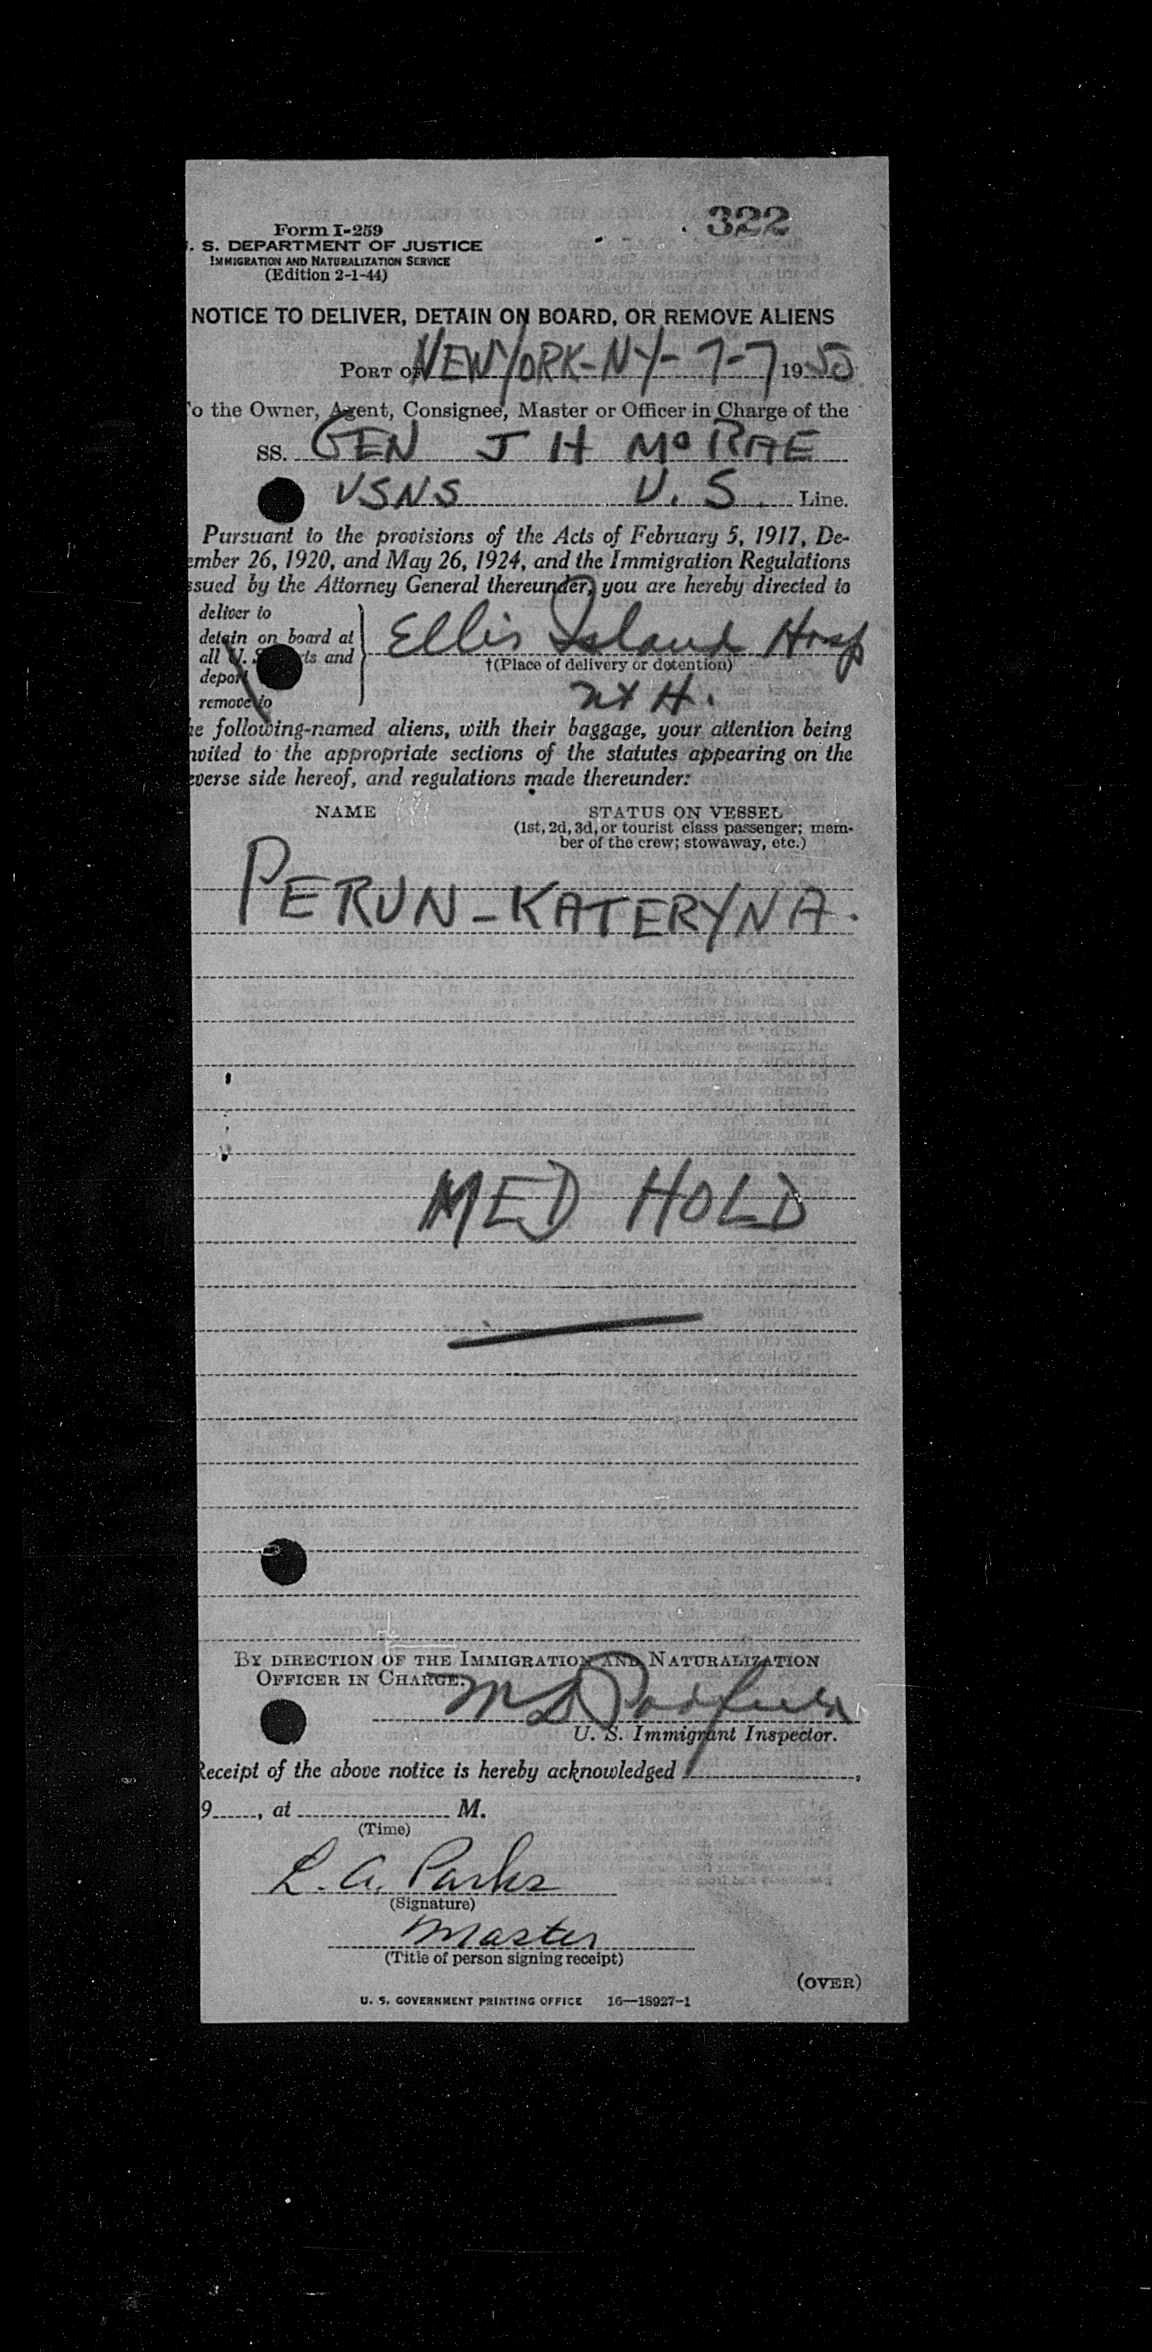 322
Form I-259
. S. DEPARTMENT OF JUSTICE
IMMIGRATION AND NATURALIZATION SERVICE
(Edition 2-1-44)
NOTICE TO DELIVER, DETAIN ON BOARD, OR REMOVE ALIENS
PORT OF NEW YORK-NY- 7-7 1950
o the Owner, Agent, Consignee, Master or Officer in Charge of the
SS. GEN J H McRAE
USNS U. S. Line.
Pursuant to the provisions of the Acts of February 5, 1917, De-
ember 26, 1920, and May 26, 1924, and the Immigration Regulations
ssued by the Attorney General thereunder, you are hereby directed to
deliver to
detain on board at
all U. S. rts and
deport
remove to
Ellis Island Hosp
†(Place of delivery or detention)
H.
e following-named aliens, with their baggage, your attention being
nvited to the appropriate sections of the statutes appearing on the
everse side hereof, and regulations made thereunder:
NAME STATUS ON VESSEL
(1st, 2d, 3d, or tourist class passenger; mem-
ber of the crew; stowaway, etc.)
PERUN-KATERYNA.
MED HOLD
BY DIRECTION OF THE IMMIGRATION AND NATURALIZATION
OFFICER IN CHARGE:
U. S. Immigrant Inspector.
Receipt of the above notice is hereby acknowledged ,
9 , at M.
(Time)
L. A. Parks
(Signature)
Master
(Title of person signing receipt)
(OVER)
U. S. GOVERNMENT PRINTING OFFICE 16—18927-1